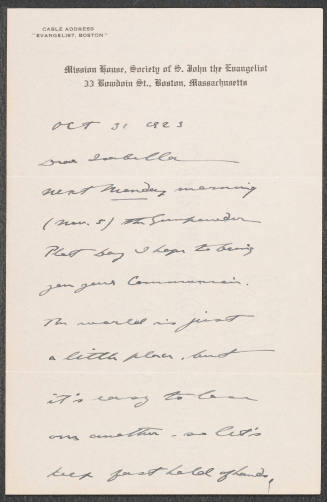 CABLE ADDRESS
"EVANGELIST, BOSTON"
Mission House, Society of S. John the Evangelist
33 Bowdoin St., Boston, Massachusetts
Oct 31 1923
Dear Isabella
next Monday morning
(Nov. 5) the Gunpowder
Plot day I hope to bring
you your Communion.
The world is just
a little place, but
it's easy to lose
one another. so let's
keep fast hold of hands,